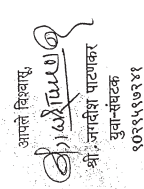 आपले विश्वासू,
श्री. जगदीश पाटणकर
युवा-संघटक
९०२९५१७२४१